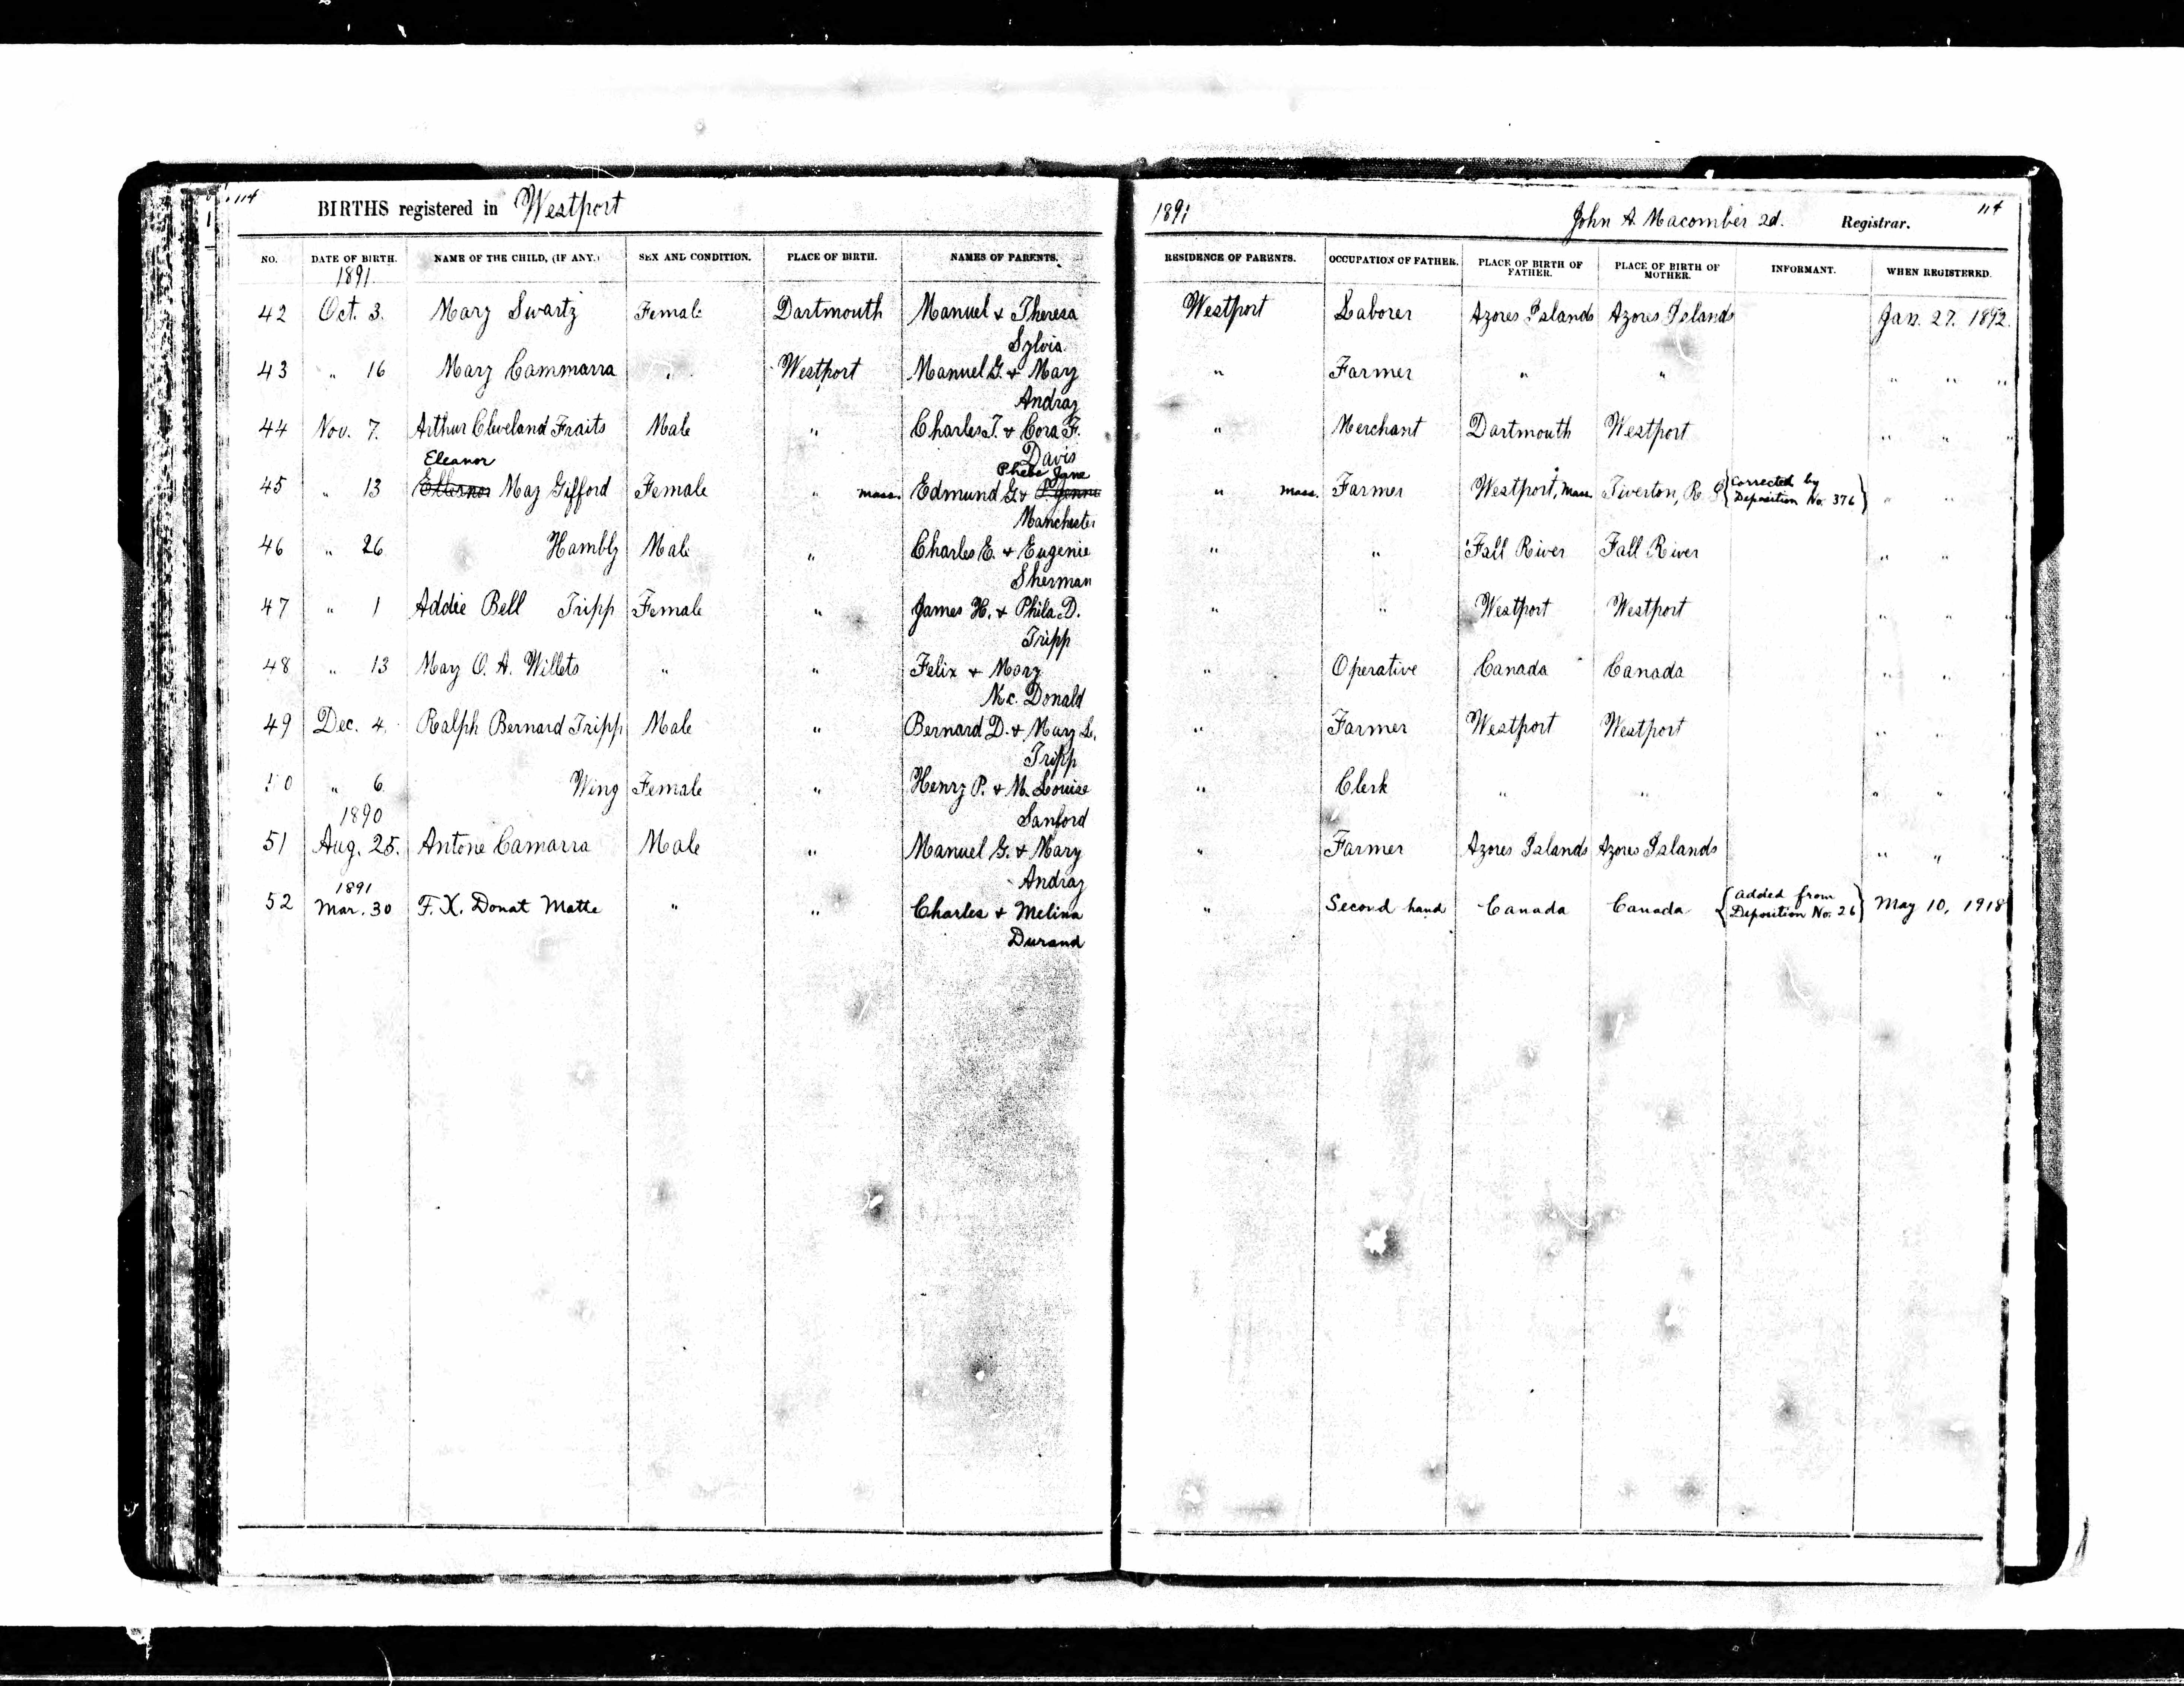 114
BIRTHS registered in Westport
1891
John A. Macomber 2d. Registrar.
114
NO. DATE OF BIRTH. NAME OF THE CHILD, (IF ANY.) SEX AND CONDITION. PLACE OF BIRTH. NAMES OF PARENTS. RESIDENCE OF PARENTS. OCCUPATION OF FATHER. PLACE OF BIRTH OF FATHER. PLACE OF BIRTH OF MOTHER. INFORMANT. WHEN REGISTERED.
1891
42 Oct. 3. Mary Swartz Female Dartmouth Manuel & Theresa Westport Laborer Azores Islands Azores Islands Jan. 27. 1892.
Sylvia
43 " 16 Mary Cammarra " Westport Manuel G. & Mary " Farmer " " " " "
Andraz
44 Nov. 7. Arthur Cleveland Fraits Male " Charles T. & Cora F. " Merchant Dartmouth Westport " " "
Davis
Eleanor Phebe Jane
45 " 13 May Gifford Female " Mass. Edmund G. & " Mass. Farmer Westport, Mass. Tiverton, R. I. { Corrected by Deposition No. 376 } " "
Manchester
46 " 26 Hambly Male " Charles E. & Eugenie " " Fall River Fall River " "
Sherman
47 " 1 Addie Bell Tripp Female " James H. & Phila D. " " Westport Westport " " "
Tripp
48 " 13 May O. A. Willets " " Felix & Mary " Operative Canada Canada " " "
Mc. Donald
49 Dec. 4. Ralph Bernard Tripp Male " Bernard D. & Mary L. " Farmer Westport Westport " " "
Tripp
50 " 6 Wing Female " Henry P. & M. Louise " Clerk " " " " "
1890 Sanford
51 Aug. 25. Antone Camarra Male " Manuel G. & Mary " Farmer Azores Islands Azores Islands " " "
1891 Andraz
52 Mar. 30 F. X. Donat Matte " " Charles & Melina " Second hand Canada Canada { Added from Deposition No. 26 } May 10, 1918
Durand